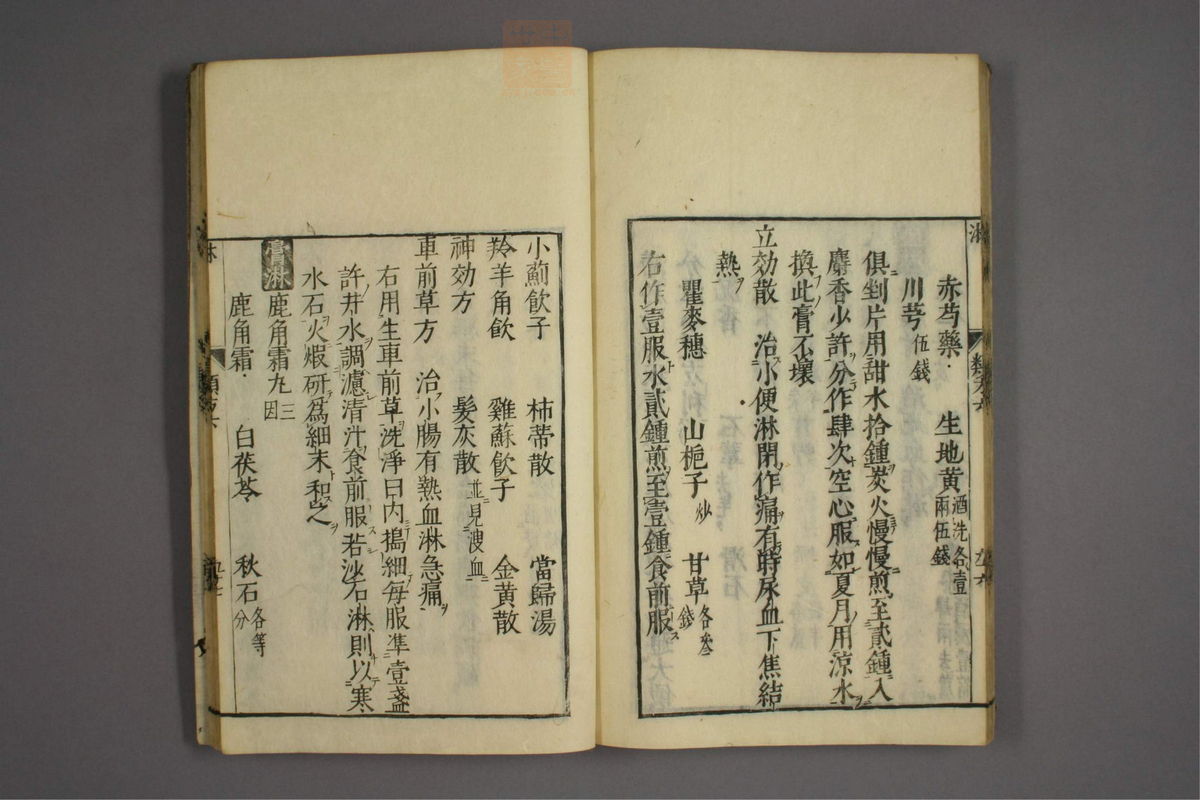 赤芍藥 生地黄酒洗各壹兩伍錢
川芎伍錢
俱剉片用甜水拾鍾炭火慢慢煎至貳鍾入
麝香少許分作肆次空心服如夏月用涼水
換此膏不壞
立効散 治小便淋閉作痛有時尿血下焦結
熱
瞿麥穗 山梔子炒 甘草各叁錢
右作壹服水貳鍾煎至壹鍾食前服
小薊飲子 柿蒂散 當歸湯
羚羊角飲 雞蘇飲子 金黄散
神効方 髮灰散並見溲血
車前草方 治小腸有熱血淋急痛
右用生車前草洗淨臼内搗細每服準壹盞
許井水調濾清汁食前服若沙石淋則以寒
水石火煅研爲細末和之
膏淋 鹿角霜丸三因
鹿角霜 白茯苓 秋石各等分